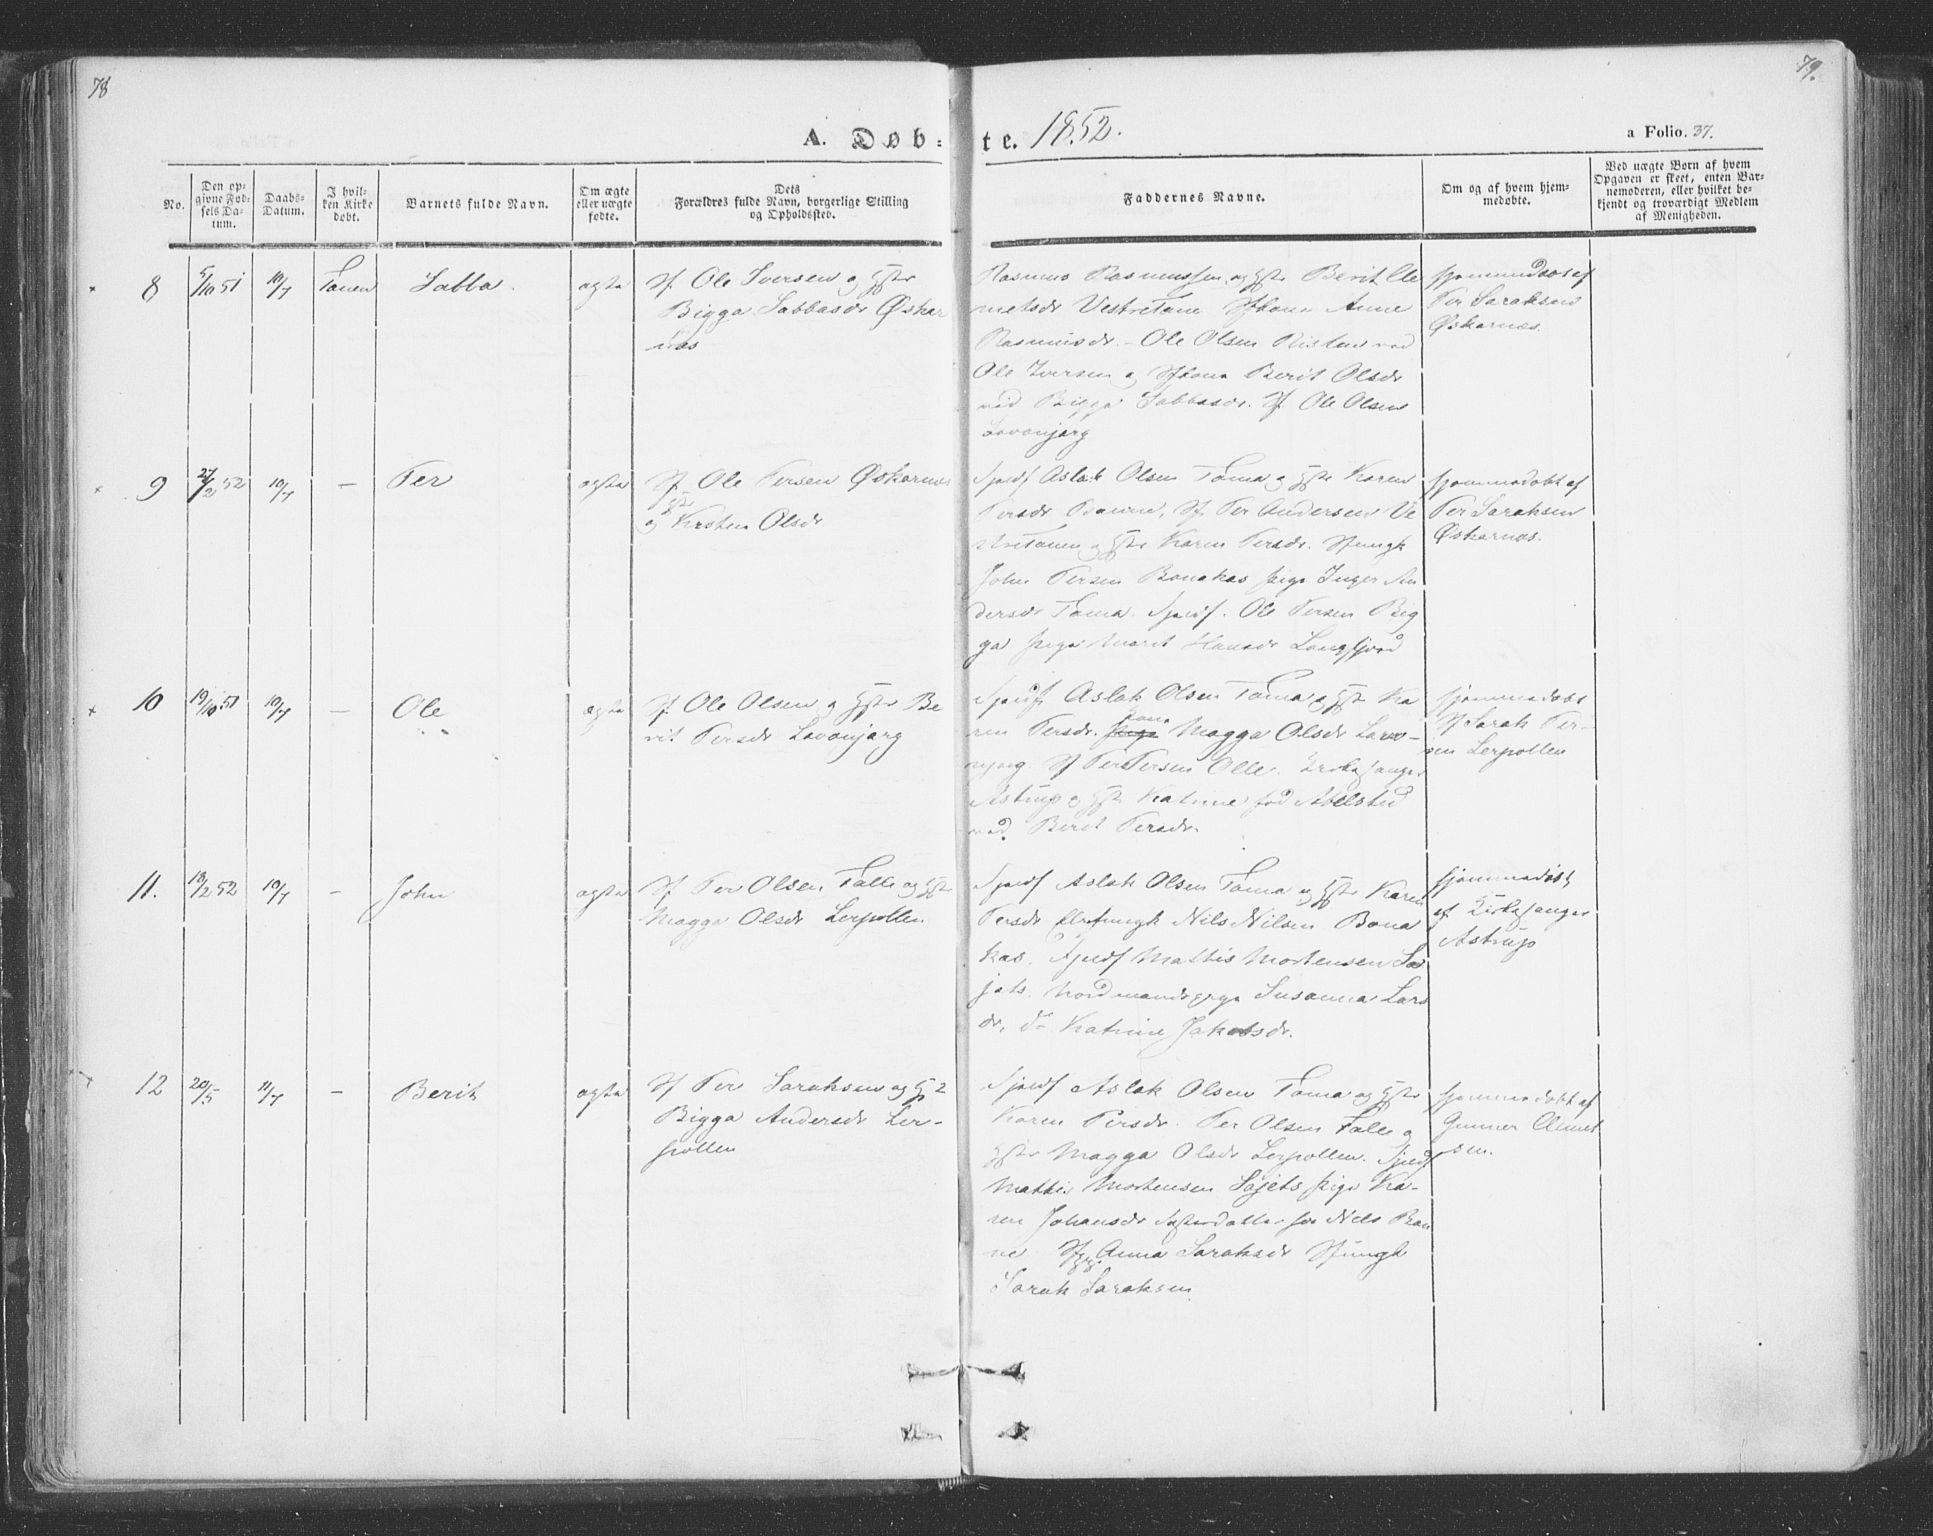 78
79.
A. Døb=
te. 1852.
a Folio. 37.
No.
Den op-
givne Fød-
sels Da-
tum.
Daabs-
Datum.
I hvil-
ken Kirke
døbt.
Barnets fulde Navn.
Om ægte
eller uægte
fødte.
Dets
Forældres fulde Navn, borgerlige Stilling
og Opholdssted.
Faddernes Navne.
Om og af hvem hjem-
medøbte.
Ved uægte Børn af hvem
Opgaven er skeet, enten Bar-
nemoderen, eller hvilket be-
kjendt og troværdigt Medlem
af Menigheden.
8
5/10 51
10/7
Tanen
Sabba.
ægte
Sf. Ole Iversen og Hstr
Bigga Sabbasdr Øskar
næs
Rasmus Rasmussen og Hstr Berit Cle
metsdr Vestretane Sfkone Anne
Rasmusdr. - Ole Olsen
Ole Iversen og Sfkone Berit Olsdr
Bigga Sabbasdr. Sf. Ole Olsen
Lavonjarg
hjemmedøbt af
Per Saraksen
Øskarnæs.
9
27/2 52
10/7
-
Per
ægte
Sf. Ole Persen Øskarnæs
Hstr
og Kirsten Olsdr
Aslak Olsen Tama og Hstr Karen
Persdr Sf. Per Andersen Ve
stretanen og Hstr Karen Persdr. Sfungk
John Persen Bonakas pige Inger An
dersdr Tama. Ole Persen Big
ga pige Marit Hansdr Langfjord
hjemmedøbt af
Per Saraksen
Øskarnæs.
10
19/10 51
10/7
-
Ole
ægte
Sf. Ole Olsen og Hstr Be
rit Persdr Lavonjarg
Aslak Olsen Tama og Hstr Ka
kone
ren Persdr. pige Magga Olsdr Lavo-
njarg Sf Per Persen Olle. Kirkesanger
Astrup og Hstr Katrine fød Abelsted
ved Berit Persdr.
hjemmedøbt
Sf Sarak Per-
sen Lerpollen
11.
18/2 52
10/7
-
John
ægte
Sf Per Olsen Falle og Hstr
Magga Olsdr Lerpollen
Aslak Olsen Tama og Hstr Karen
Persdr Nils Nilsen Bona
kas. Mattis Mortensen Sa
jets. Nordmandspige Susanna Lars
dr, do Katrine Jakobsdr.
hjemmedøbt
af Kirkesanger
Astrup
12
20/5
11/7
-
Berit
ægte
Sf Per Saraksen og H
Bigga Andersdr Ler-
pollen
Aslak Olsen Tama og Hstr
Karen Persdr. Per Olsen Falle og
Hstr Magga Olsdr Lerpollen.
Mattis Mortensen Sajets pige Ka-
ren Johansdr Søsterdatter for Nils
Anna Saraksdr Sfungk
Sarak Saraksen
hjemmedøbt af
Gunner Clemet
sen.